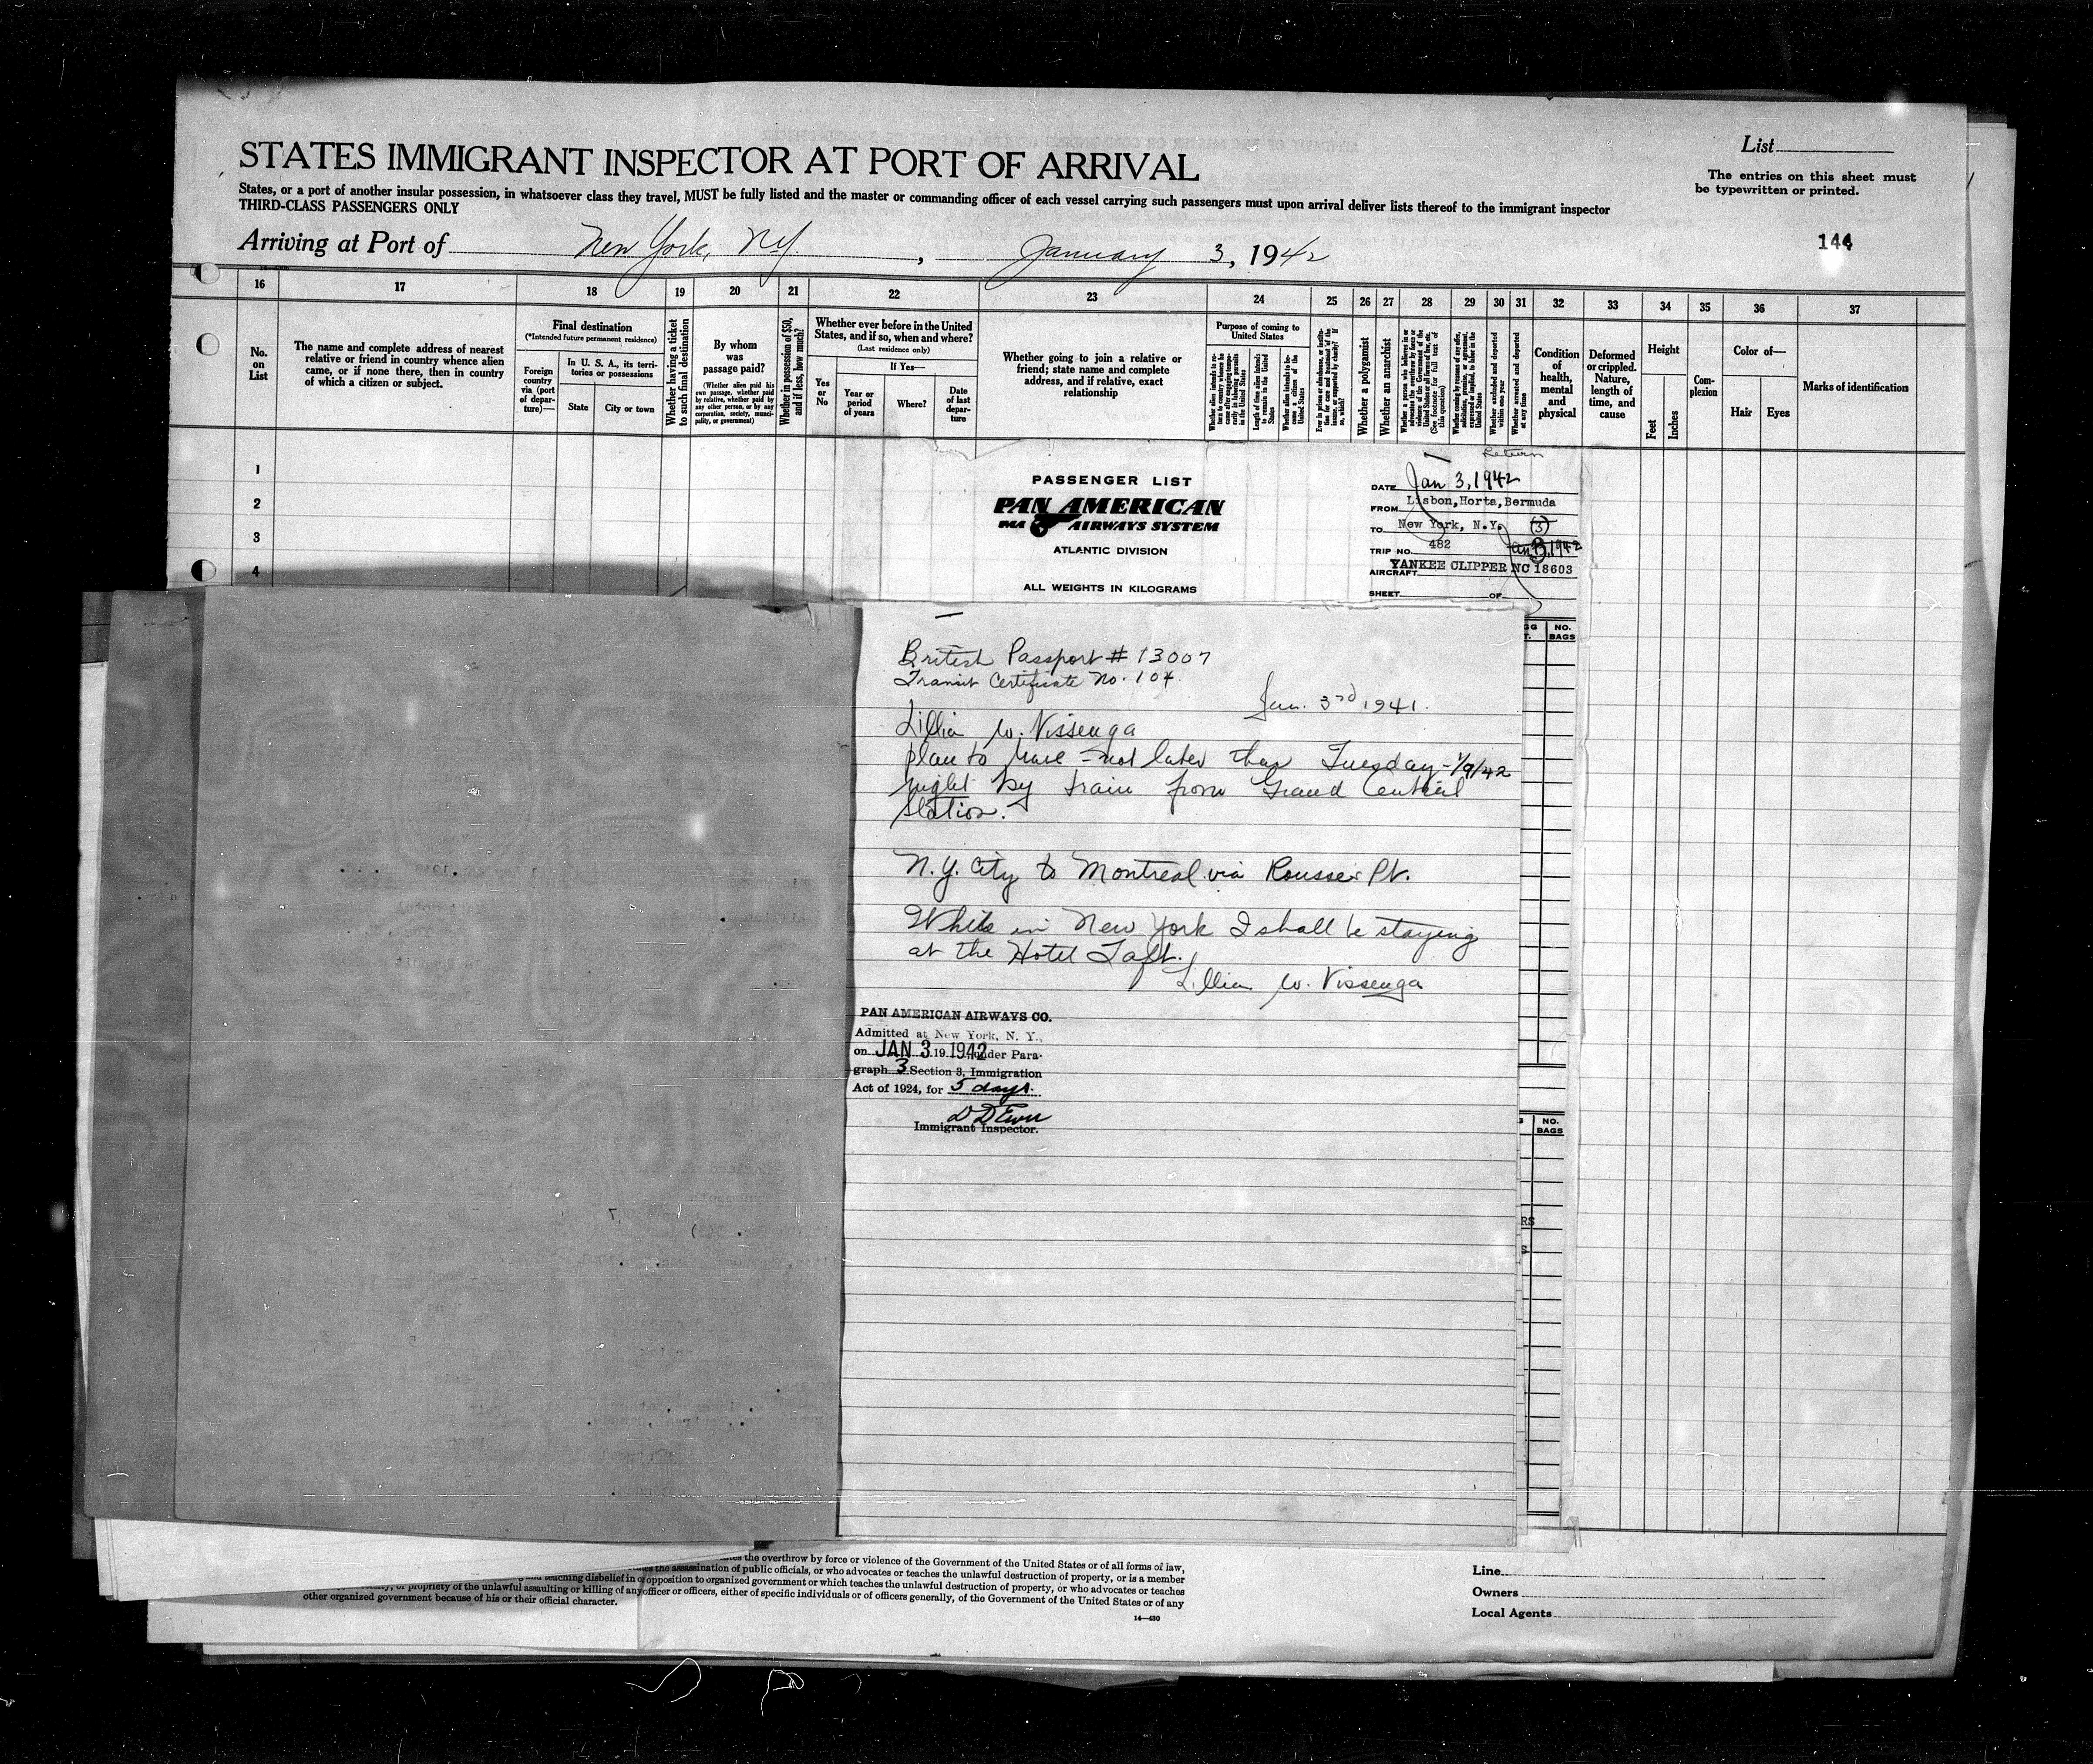 STATES IMMIGRANT INSPECTOR AT PORT OF ARRIVAL
List
The entries on this sheet must
be typewritten or printed.
States, or a port of another insular possession, in whatsoever class they travel, MUST be fully listed and the master or commanding officer of each vessel carrying such passengers must upon arrival deliver lists thereof to the immigrant inspector
THIRD-CLASS PASSENGERS ONLY
Arriving at Port of New York, NY. , January 3, 1942
144
16 17 18 19 20 21 22 23 24 25 26 27 28 29 30 31 32 33 34 35 36 37
No.
on
List
The name and complete address of nearest
relative or friend in country whence alien
came, or if none there, then in country
of which a citizen or subject.
Final destination
(*Intended future permanent residence)
Foreign
country
via (port
of depar-
ture)—
In U. S. A., its terri-
tories or possessions
State
City or town
Whether having a ticket
to such final destination
By whom
was
passage paid?
(Whether alien paid his
own passage, whether paid
by relative, whether paid by
any other person, or by any
corporation, society, munici-
pality, or government)
Whether in possession of $50,
and if less, how much?
Whether ever before in the United
States, and if so, when and where?
(Last residence only)
If Yes—
Yes
or
No
Year or
period
of years
Where?
Date
of last
depar-
ture
Whether going to join a relative or
friend; state name and complete
address, and if relative, exact
relationship
Purpose of coming to
United States
Length of time alien intends
to remain in the United
States
Whether alien intends to be-
come a citizen of the
United States
Whether a polygamist
Whether an anarchist
Whether excluded and deported
within one year
Whether arrested and deported
at any time
Condition
of
health,
mental
and
physical
Deformed
or crippled.
Nature,
length of
time, and
cause
Height
Feet
Inches
Com-
plexion
Color of—
Hair
Eyes
Marks of identification
1
2
3
4
PASSENGER LIST
PAN AMERICAN
PAA AIRWAYS SYSTEM
ATLANTIC DIVISION
ALL WEIGHTS IN KILOGRAMS
Return
DATE Jan 3, 1942
FROM Lisbon, Horta, Bermuda
TO New York, N.Y. (3)
TRIP NO. 482
AIRCRAFT YANKEE CLIPPER NC 18603
SHEET OF
NO.
BAGS
British Passport # 13007
Transit Certificate No. 104
Jan. 3rd 1941.
Lillia W. Vissenga
plan to leave - not later than Tuesday -
night by train from Grand Central
Station.
N.Y. City to Montreal via Rouses Pt.
While in New York I shall be staying
at the Hotel Taft.
Lillia W. Vissenga
PAN AMERICAN AIRWAYS CO.
Admitted at New York, N. Y.,
on JAN 3 19 1942 under Para-
graph 3 Section 3, Immigration
Act of 1924, for 5 days.
Immigrant Inspector.
NO.
BAGS
RS
the overthrow by force or violence of the Government of the United States or of all forms of law,
the assassination of public officials, or who advocates or teaches the unlawful destruction of property, or is a member
teaching disbelief in or opposition to organized government or which teaches the unlawful destruction of property, or who advocates or teaches
or propriety of the unlawful assaulting or killing of any officer or officers, either of specific individuals or of officers generally, of the Government of the United States or of any
other organized government because of his or their official character.
14—430
Line
Owners
Local Agents